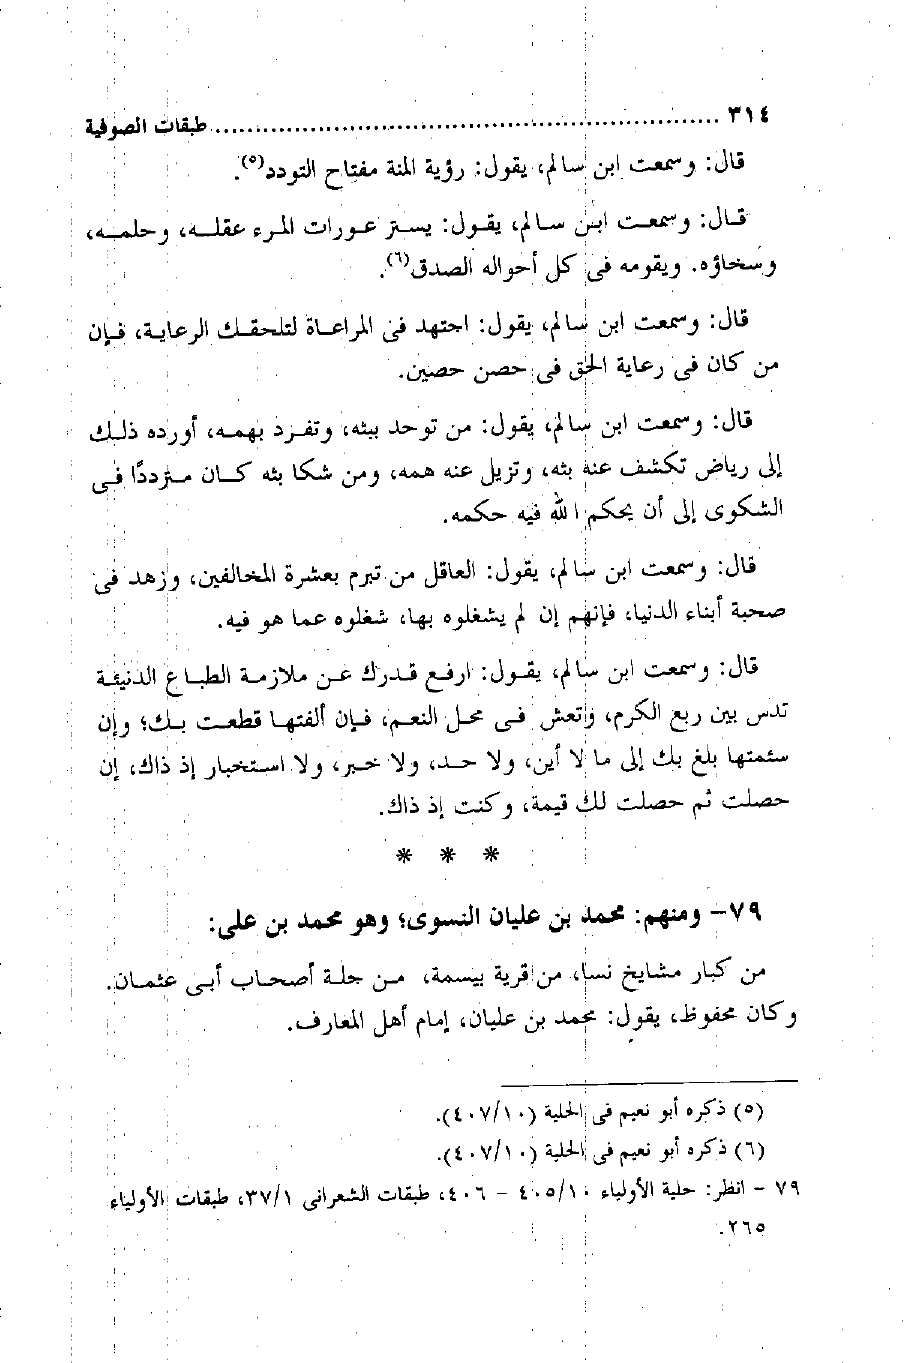 ٣١٤ ........................................................................ طبقات الصوفية
قال: وسمعت ابن سالم، يقول: رؤية المنة مفتاح التودد(٥).
قال: وسمعت ابن سالم، يقول: يستر عورات المرء عقله، وحلمه،
وسخاؤه. ويقومه فى كل أحواله الصدق(٦).
قال: وسمعت ابن سالم، يقول: اجتهد فى المراعاة لتلحقك الرعاية، فإن
من كان فى رعاية الحق فى حصن حصين.
قال: وسمعت ابن سالم، يقول: من توحد ببثه، وتفرد بهمه، أورده ذلك
إلى رياض تكشف عنه بثه، وتزيل عنه همه، ومن شكا بثه كان مترددًا فى
الشكوى إلى أن يحكم الله فيه حكمه.
قال: وسمعت ابن سالم، يقول: العاقل من تبرم بعشرة المخالفين، وزهد فى
صحبة أبناء الدنيا، فإنهم إن لم يشغلوه بها، شغلوه عما هو فيه.
قال: وسمعت ابن سالم، يقول: ارفع قدرك عن ملازمة الطباع الدنيئة
تدس بين ربع الكرم، وتعش فى محل النعم، فإن ألفتها قطعت بك؛ وإن
سئمتها بلغ بك إلى ما لا أين، ولا حد، ولا خبر، ولا استخبار إذ ذاك، إن
حصلت ثم حصلت لك قيمة، وكنت إذ ذاك.
* * *
٧٩- ومنهم: محمد بن عليان النسوى؛ وهو محمد بن على:
من كبار مشايخ نسا، من قرية بيسمة، من جلة أصحاب أبى عثمان.
وكان محفوظ، يقول: محمد بن عليان، إمام أهل المعارف.
(٥) ذكره أبو نعيم فى الحلية (٤٠٧/١٠).
(٦) ذكره أبو نعيم فى الحلية (٤٠٧/١٠).
٧٩ - انظر: حلية الأولياء ٤٠٥/١٠ - ٤٠٦، طبقات الشعرانى ٣٧/١، طبقات الأولياء
٢٦٥.